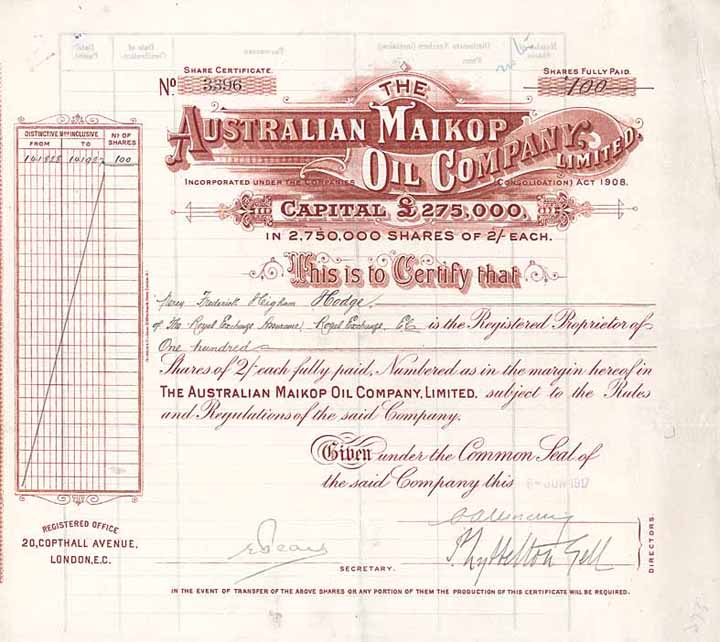 SHARE CERTIFICATE.
Nº 3396
SHARES FULLY PAID.
100
THE
AUSTRALIAN MAIKOP
OIL COMPANY, LIMITED.
INCORPORATED UNDER THE COMPANIES (CONSOLIDATION) ACT 1908.
CAPITAL £275,000.
IN 2,750,000 SHARES OF 2/- EACH.
This is to Certify that
Frederick Higham Hodge
of The Royal Exchange Assurance, Royal Exchange, EC is the Registered Proprietor of
One hundred
Shares of 2/- each fully paid, Numbered as in the margin hereof in
THE AUSTRALIAN MAIKOP OIL COMPANY, LIMITED. subject to the Rules
and Regulations of the said Company.
Given under the Common Seal of
the said Company this JUN 1917
DISTINCTIVE Nos INCLUSIVE
Nº OF SHARES
FROM TO
141828 141927 100
REGISTERED OFFICE
20, COPTHALL AVENUE,
LONDON, E.C.
P. Lyttelton Gell
DIRECTORS.
SECRETARY.
IN THE EVENT OF TRANSFER OF THE ABOVE SHARES OR ANY PORTION OF THEM THE PRODUCTION OF THIS CERTIFICATE WILL BE REQUIRED.